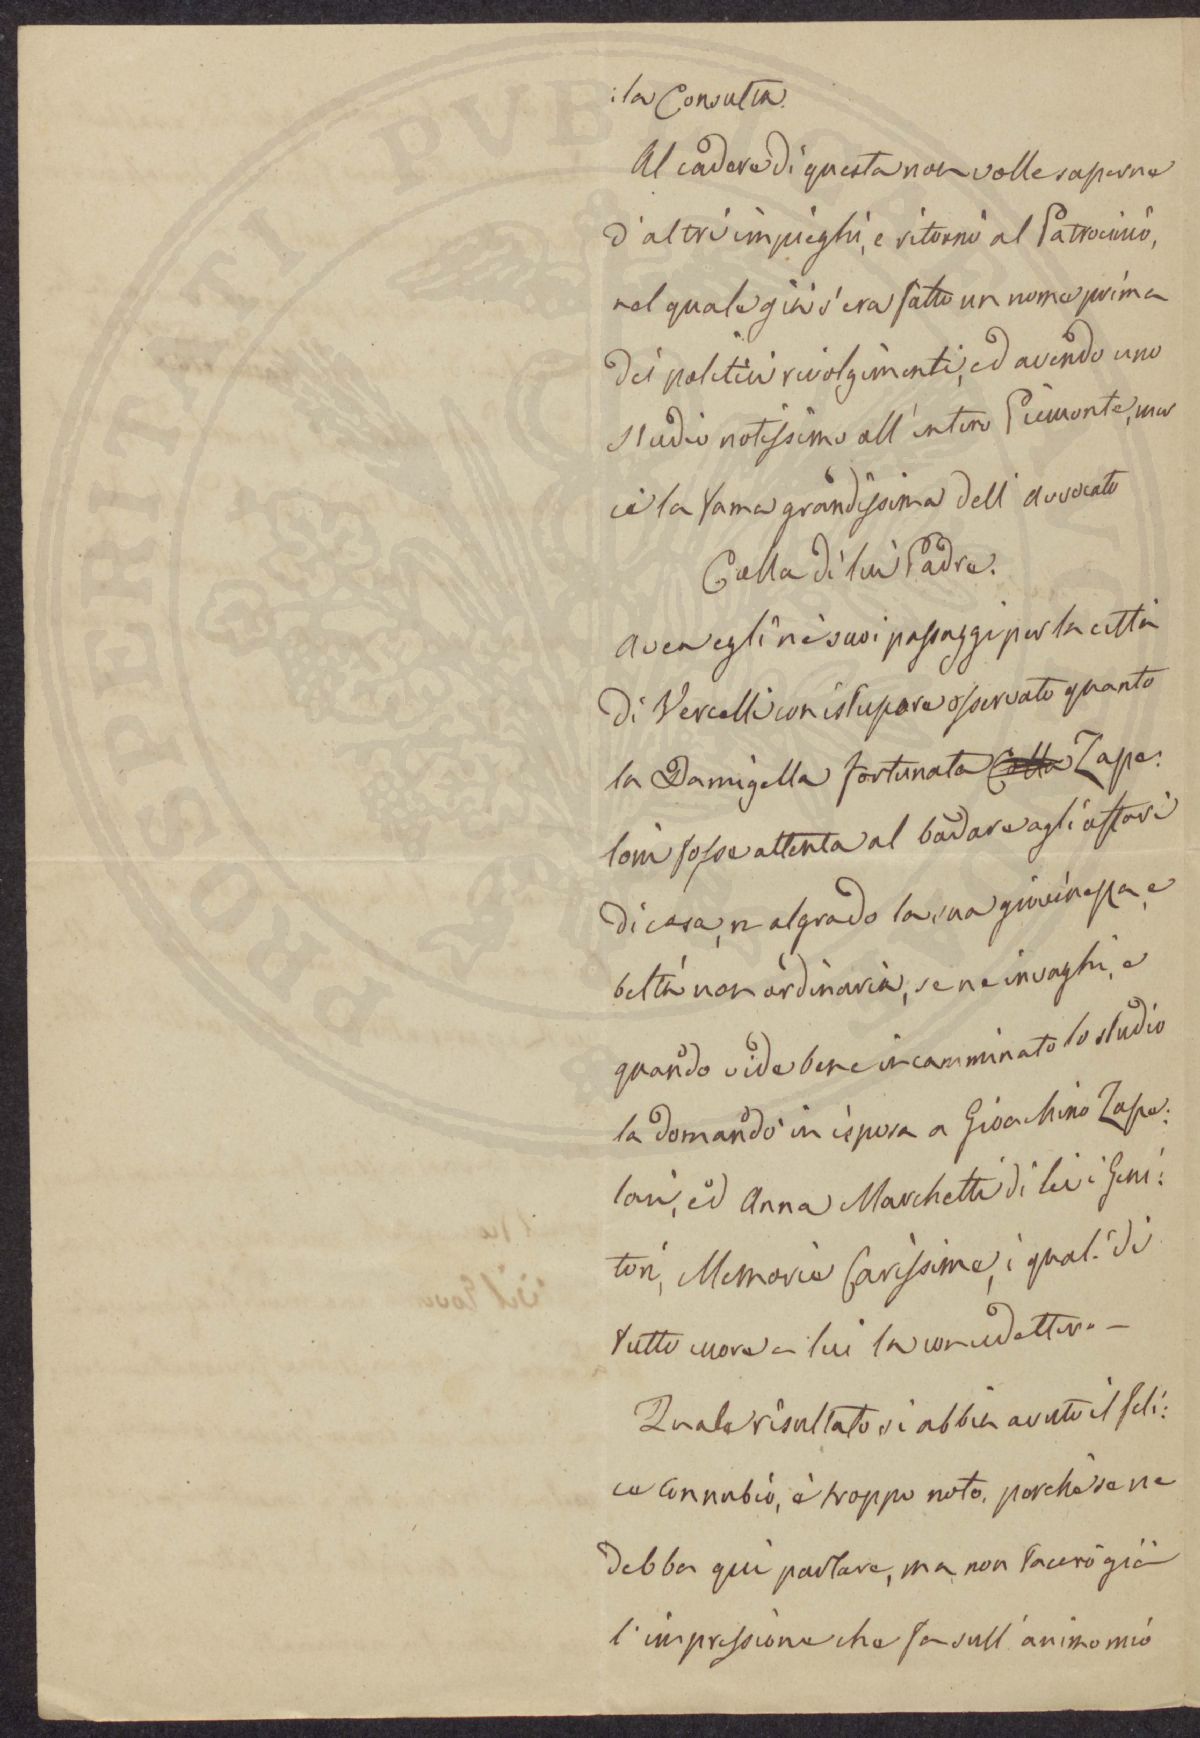 :la Consulta.
Al cadere di questa non volle saperne
d'altri impieghi, e ritornò al Patrocinio,
nel quale già s'era fatto un nome prima
dei politici rivolgimenti, ed avendo uno
studio notissimo all'intero Piemonte, mer
cè la fama grandissima dell'avvocato
Colla di lui Padre.
Avea egli ne' suoi passaggi per la città
di Vercelli con istupore osservato quanto
la Damigella fortunata Colla Zape:
loni fosse attenta al badare agli affari
di casa, malgrado la sua giovinezza, e
beltà non ordinaria, se ne invaghì, e
quando vide bene incamminato lo studio
la domandò in isposa a Gioachino Zape:
loni, ed Anna Marchetti di lei i Geni:
tori, Memorie Carissime, i quali di
tutto cuore a lui la concedettero —
Quale risultato si abbia avuto il feli:
ce connubio, è troppo noto, perchè se ne
debba qui parlare, ma non tacerò già
l'impressione che fa sull'animo mio
PROSPERITATI PVBLICAE